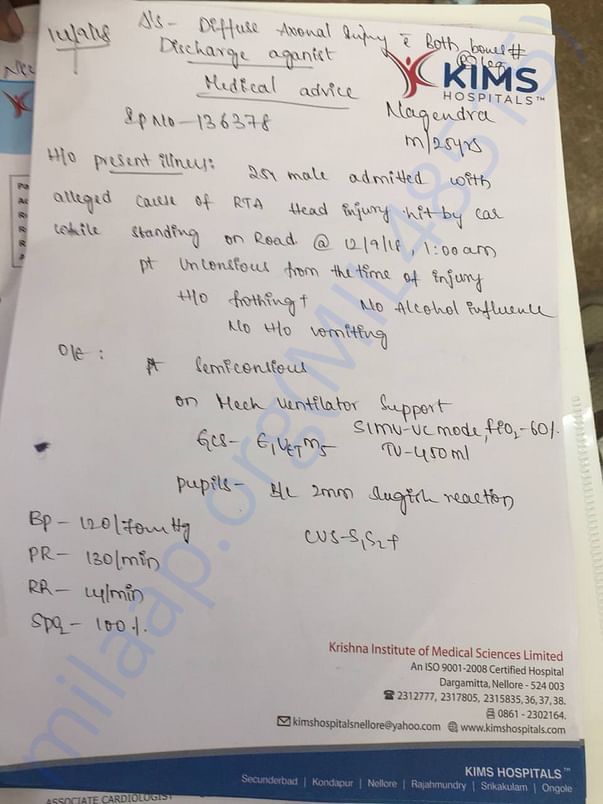 14/9/18 Δs- Diffuse Axonal Injury c̄ Both bones # @ leg
Discharge aganist
Medical advice
KIMS
HOSPITALS™
Ip No - 136378
Nagendra
m/25yrs
H/o present illness: 25y male admitted with
alleged cause of RTA Head injury hit by car
while standing on Road @ 12/9/18, 1:00am
pt Unconsious from the time of injury
H/o frothing + No Alcohol influence
No H/o vomiting
O/E : pt Semiconsious
on Mech Ventilator Support
SIMV-VC mode, fiO2-60%.
GCS- E1VETM5 TV-450ml
pupils- B/L 2mm Sugish reaction
BP- 120/70mmHg
CVS-S1S2+
PR- 130/min
RR- 14/min
SpO2- 100%.
milaap.org(MIL485115)
Krishna Institute of Medical Sciences Limited
An ISO 9001-2008 Certified Hospital
Dargamitta, Nellore - 524 003
2312777, 2317805, 2315835,36,37,38.
0861 - 2302164.
kimshospitalsnellore@yahoo.com www.kimshospitals.com
KIMS HOSPITALS™
Secunderbad | Kondapur | Nellore | Rajahmundry | Srikakulam | Ongole
ASSOCIATE CARDIOLOGIST